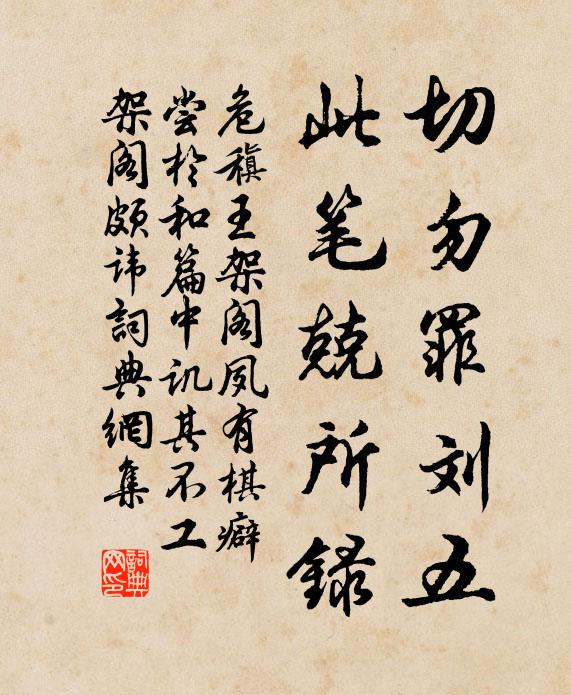 切勿罪刘五
此笔兢所録
危稹王架阁夙有棋癖
尝於和篇中讥其不工
架阁颇讳詞典網集
詞典
网印